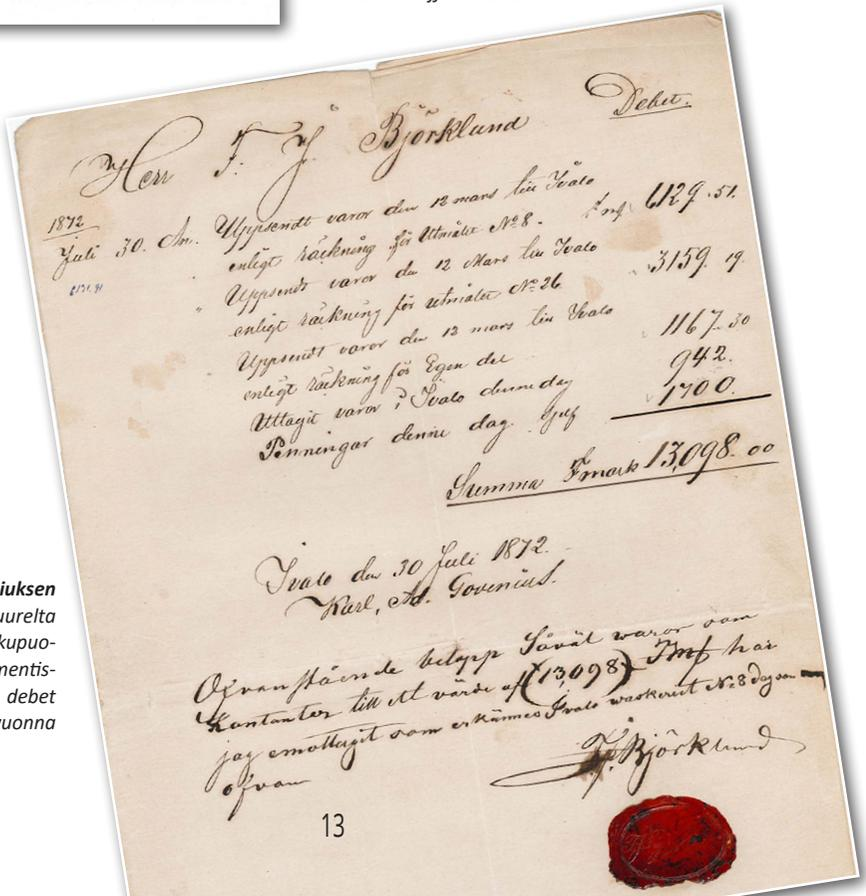 Debet.
Herr F. J. Björklund
1872
Juli 30. An. Uppsendt varor den 12 mars till Ivalo
enligt räkning för Utmålet No 8. Fmf 6129.51.
" Uppsendt varor den 12 Mars till Ivalo
enligt räkning för utmålet No 26 3159. 19.
Uppsendt varor den 12 mars till Ivalo
enligt räkning för Egen del 1167.30
Uttagit varor i Ivalo denne dag 942.
Penningar denne dag 1700.
Summa Fmark 13,098.00
Ivalo den 30 Juli 1872.
Karl, Ad. Govenius.
Ofvanstående belopp Såväl waror som
Kontanter till ett värde af (13,098) Fmf har
jag emottagit som erkännes Ivalo waskeriet No 8 dag som
ofvan
F. Björklund
iuksen
uurelta
kupuo-
mentis-
debet
vuonna
13